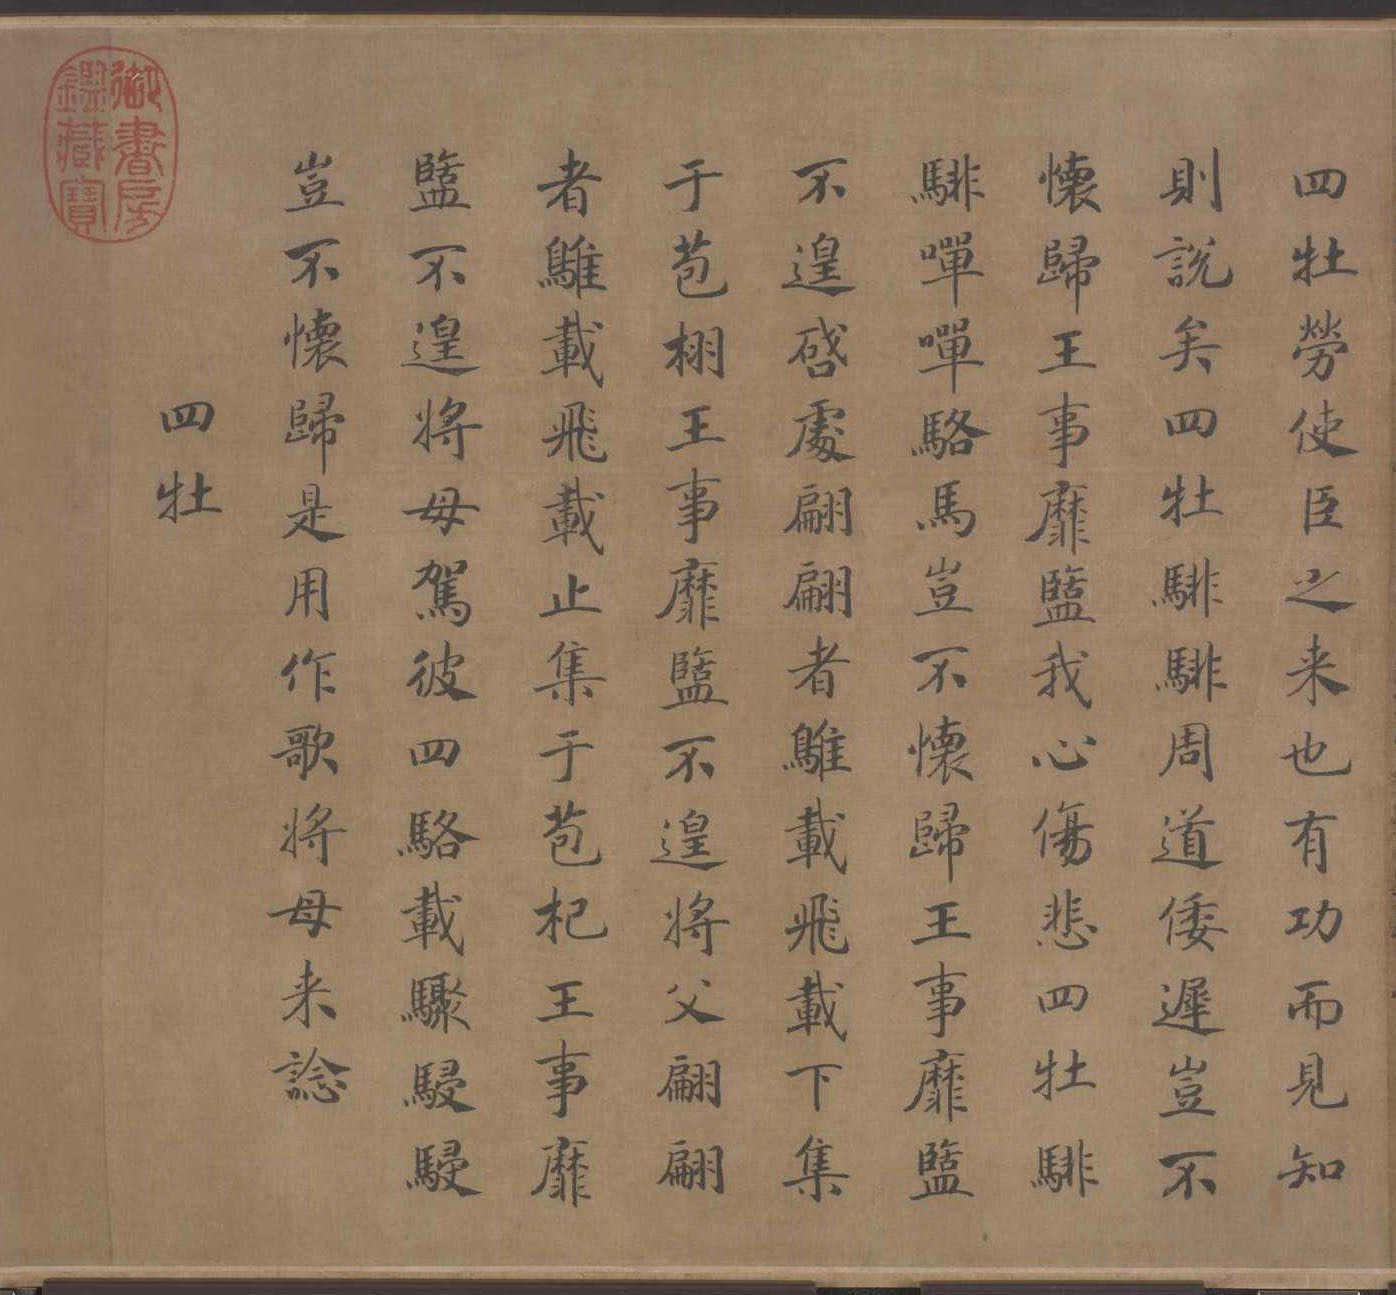 四牡勞使臣之来也有功而見知
則說矣四牡騑騑周道倭遲豈不
懷歸王事靡盬我心傷悲四牡騑
騑嘽嘽駱馬豈不懷歸王事靡盬
不遑啓處翩翩者鵻載飛載下集
于苞栩王事靡盬不遑將父翩翩
者鵻載飛載止集于苞杞王事靡
盬不遑將母駕彼四駱載驟駸駸
豈不懷歸是用作歌將母来諗
四牡
御書房
鑑藏寶